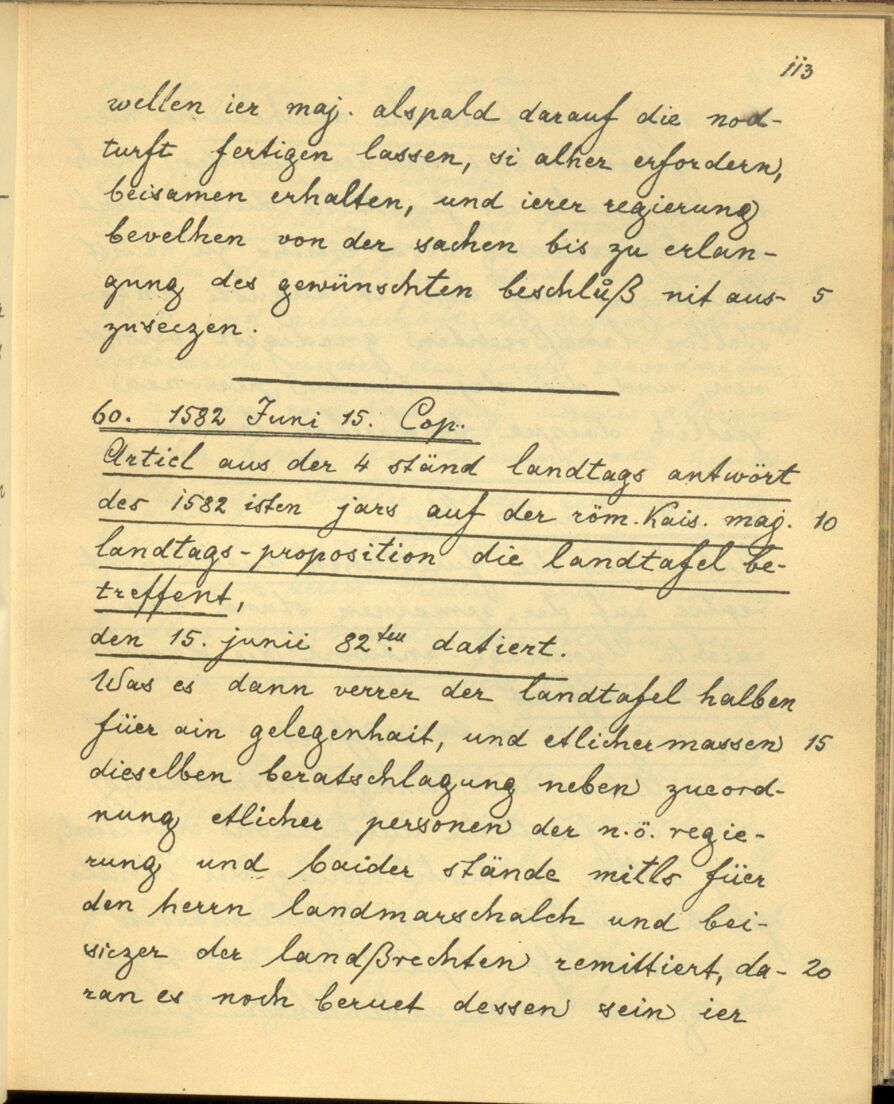 113
wellen ier maj. alspald darauf die nod-
turft fertigen lassen, si alher erfordern,
beisamen erhalten, und ierer regierung
bevelhen von der sachen bis zu erlan-
gung des gewünschten beschlůß nit aus- 5
zuseczen.
60. 1582 Juni 15. Cop.
Articl aus der 4 ständ landtags antwört
des 1582 isten jars auf der röm. Kais. maj. 10
landtags-proposition die landtafel be-
treffent,
den 15. junii 82ten datiert.
Was es dann verrer der landtafel halben
füer ain gelegenhait, und etlichermassen 15
dieselben beratschlagung neben zueord-
nung etlicher personen der n.ö. regie-
rung und baider stände mitls füer
den herrn landmarschalch und bei-
siczer der landßrechten remittiert, da- 20
ran es noch beruet dessen sein ier